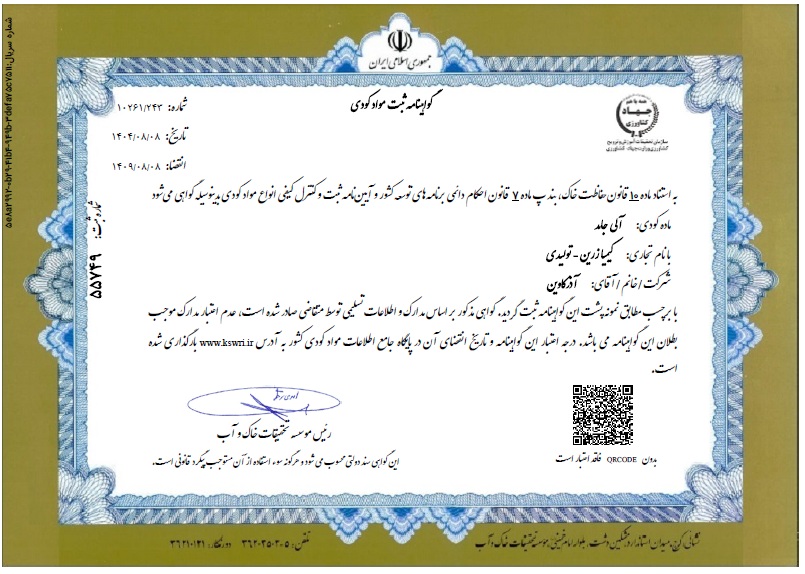 جمهوری اسلامی ایران
گواهینامه ثبت مواد کودی
شماره: ۱۰۲۶۱/۲۴۳
تاریخ: ۱۴۰۴/۰۸/۰۸
انقضا: ۱۴۰۹/۰۸/۰۸
جهاد
کشاورزی
سازمان تحقیقات، آموزش و ترویج
شماره ثبت: ۵۵۷۴۹
به استناد ماده ۱۰ قانون حفاظت خاک، بند پ ماده ۷ قانون احکام دائمی برنامه های توسعه کشور و آیین نامه ثبت و کنترل کیفی انواع مواد کودی بدینوسیله گواهی می شود
ماده کودی: آلی جامد
با نام تجاری: کیمیا زرین - تولیدی
شرکت/خانم/آقای: آذرکاوین
با برچسب مطابق نمونه پشت این گواهینامه ثبت گردید. گواهی مذکور بر اساس مدارک و اطلاعات تسلیمی توسط متقاضی صادر شده است، عدم اعتبار مدارک موجب
بطلان این گواهینامه می باشد. درجه اعتبار این گواهینامه و تاریخ انقضای آن در پایگاه جامع اطلاعات مواد کودی کشور به آدرس www.kswri.ir بارگذاری شده
است.
رئیس موسسه تحقیقات خاک و آب
بدون QRCODE فاقد اعتبار است
این گواهی سند دولتی محسوب می شود و هرگونه سوء استفاده از آن مستوجب پیگرد قانونی است.
نشانی: کرج، میدان استاندارد، مشکین دشت، بلوار امام خمینی، موسسه تحقیقات خاک و آب
تلفن: ۳۶۲۰۲۵۰۲۰۵ دورنگار: ۳۶۲۱۰۱۲۱